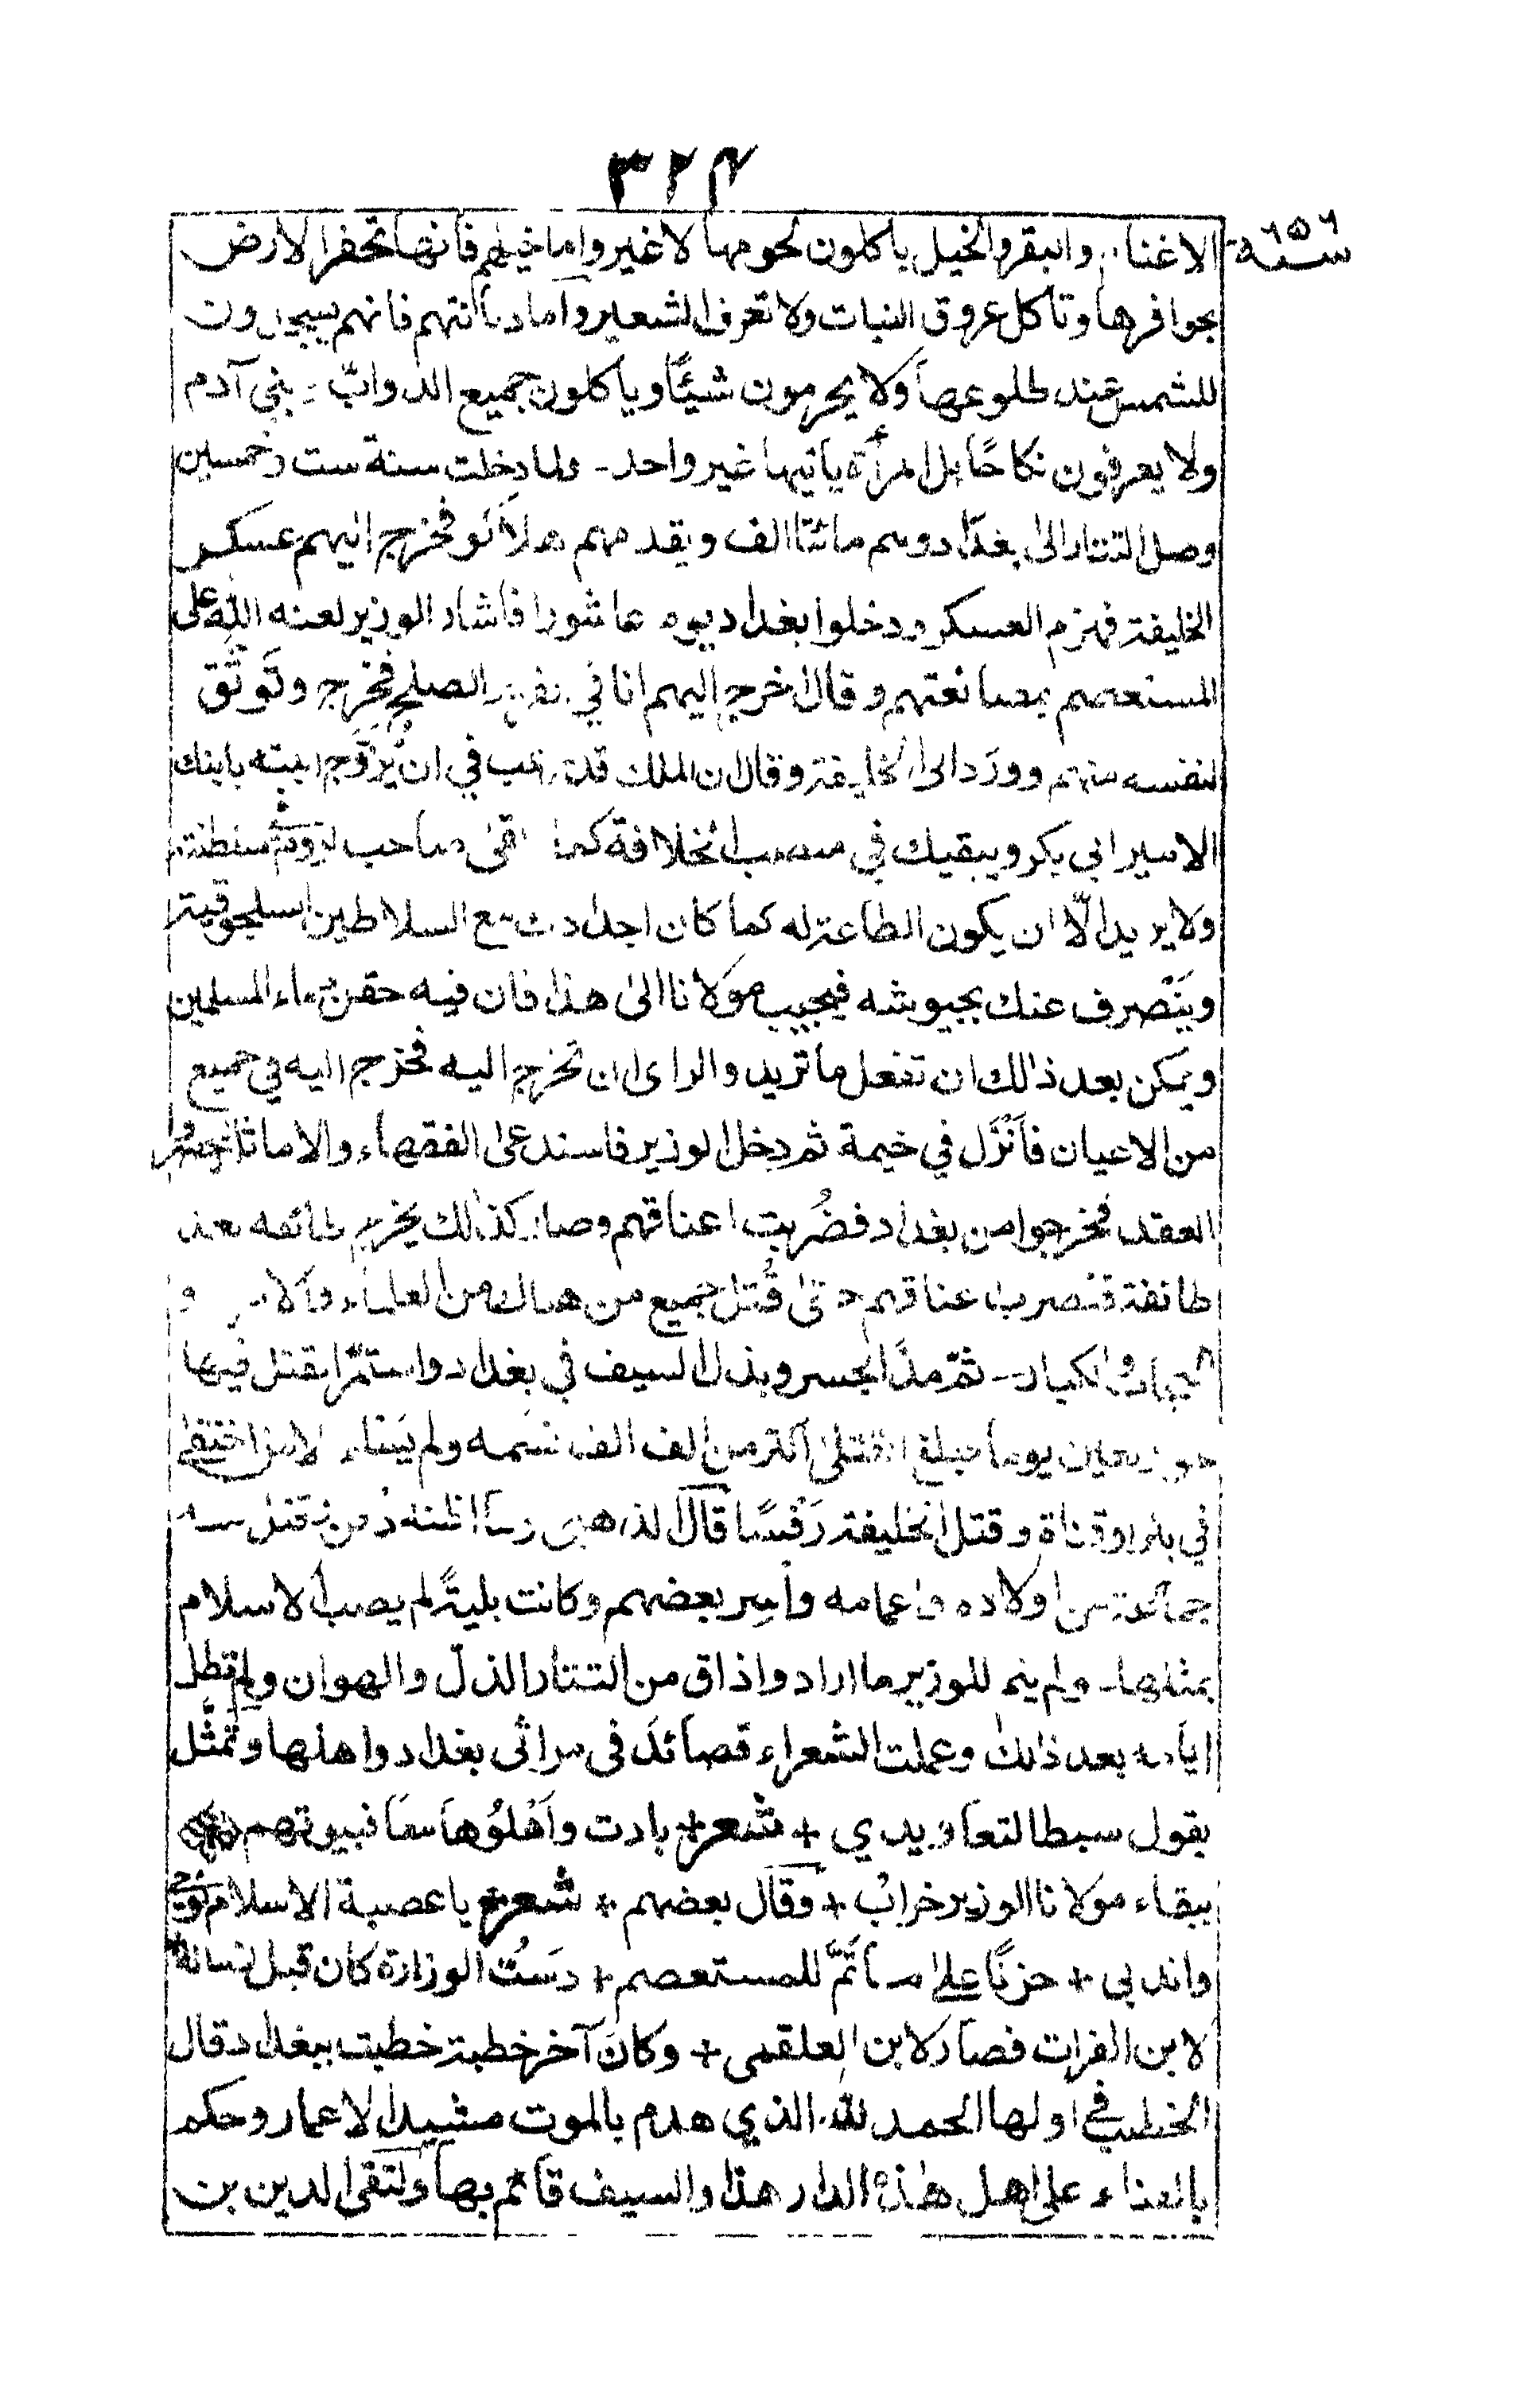 ٣٢٤
سنة ٦٥٦
الاغنام والبقر والخيل ياكلون لحومها لا غير واما خيلهم فانها تحفر الارض
بحوافرها وتاكل عروق النبات ولا تعرف الشعير واما ديانتهم فانهم يسجدون
للشمس عند طلوعها ولا يحرمون شيئًا وياكلون جميع الدوابّ بني آدم
ولا يعرفون نكاحًا بل المرأة ياتيها غير واحد - ولما دخلت سنة ست وخمسين
وصل التتار الى بغداد وهم مائتا الف ويقدمهم هلاكو فخرج اليهم عسكر
الخليفة فهزم العسكر ودخلوا بغداد يوم عاشورا فاشار الوزير لعنه الله على
المستعصم بمصانعتهم وقال اخرج اليهم انا في تقرير الصلح فخرج وتَوثَّق
لنفسه منهم وورَد الى الخليفة وقال ان الملك قد رغب في ان يُزوّج ابنته بابنك
الامير ابي بكر ويبقيك في منصب الخلافة كما ابقى صاحب الروم في سلطنته
ولا يريد الّا ان يكون الطاعة له كما كان اجدادك مع السلاطين السلجوقية
ويَنْصرف عنك بجيوشه فيجيب مولانا الى هذا فان فيه حقن دماء المسلمين
ويمكن بعد ذالك ان تفعل ما تريد والراى ان تخرج اليه فخرج اليه في جميع
من الاعيان فاَنْزَل في خيمة ثم دخل الوزير فاستدعى الفقهاء والاماثل ليحضروا
العقد فخرجوا من بغداد فضُربت اعناقهم وصار كذالك يخرج طائفه بعد
طائفة فتضرب اعناقهم حتى قُتل جميع من هناك من العلماء والامراء و
الحجاب والكبار - ثمّ مدّ الجسر وبذل السيف في بغداد واستمّر القتل فيها
نحو اربعين يوما فبلغ القتلى اكثر من الف الف نسَمه ولم يَسْلم الا من اختفى
في بئر او قناة وقتل الخليفة رَفْسًا قال الذهبى وما اظنه دُفن وقتل معه
جماعة من اولاده واعمامه واُسِر بعضهم وكانت بليةً لم يصب الاسلام
بمثلها - ولم يتم للوزير ما اراد واذاق من التتار الذلّ والهوان ولم تطل
ايامه بعد ذالك وعملت الشعراء قصائدَ فى مراثى بغداد واهلها وتمثّل
بقول سبط التعاويذي + شعر + بادت واَهْلُوها معًا فبيوتهم
ببقاء مولانا الوزير خرابُ + وقال بعضهم + شعر + يا عصبة الاسلام نوحى
واندبى + حزنًا على ما تَمّ للمستعصم + دسَتُ الوزارة كان قبل زمانه
لابن الفرات فصار لابن العلقمى + وكان آخر خطبة خطبت ببغداد قال
الخطيب في اولها الحمد لله الذي هدم بالموت مشيد الاعمار وحكم
بالفناء على اهل هذه الدار هذا والسيف قائم بها ولتقى الدين بن